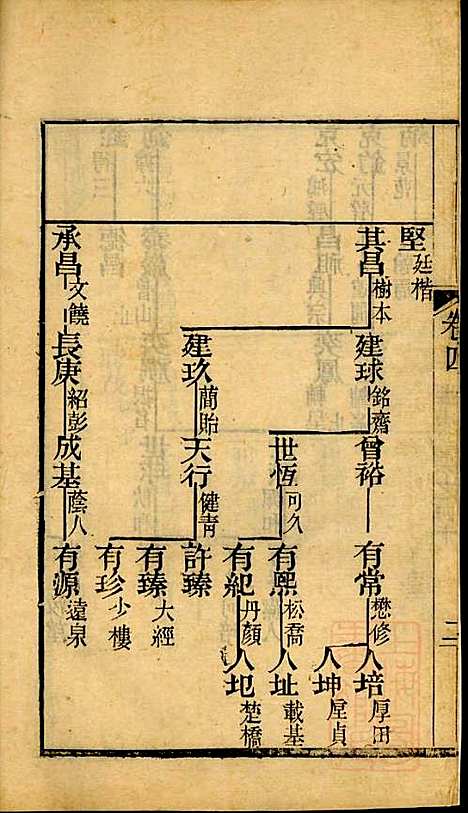 卷四
二
堅 廷楷
其昌 樹本
建球 銘齋
曾裕
有常 懋修
人培 厚田
人坤 厚貞
世恆 可久
有熙 松喬
人址 載基
有紀 丹顏
人圯 楚橋
建玖 蘭貽
天行 健青
許臻
有臻 大經
有珍 少樓
承昌 文饒
長庚 紹彭
成基 蔭人
有源 遠泉